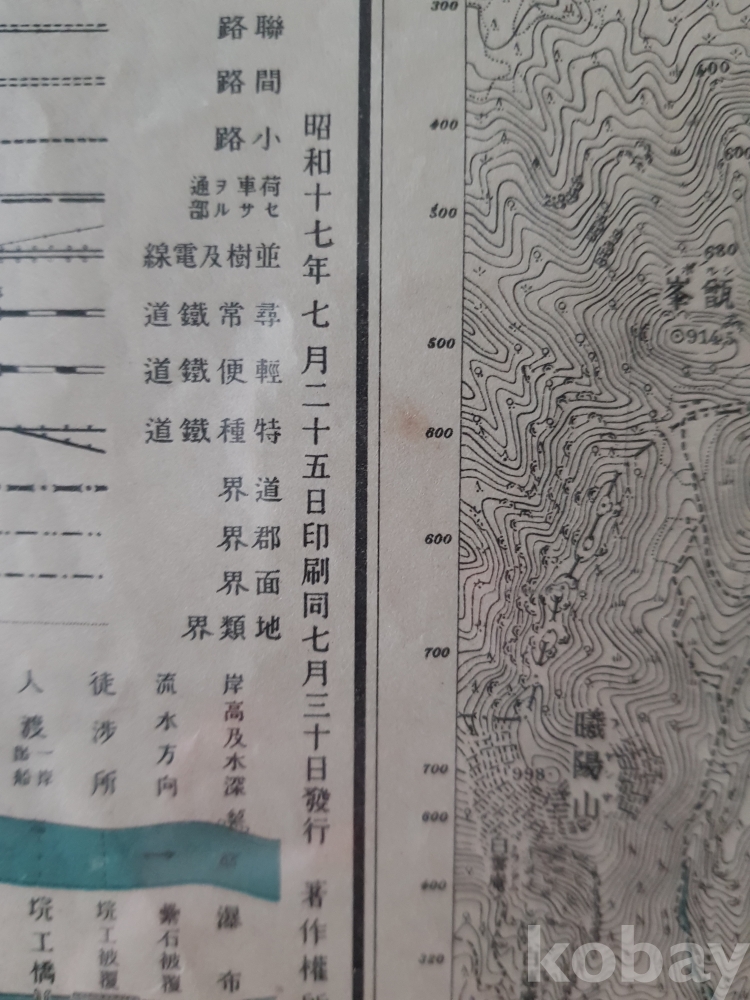 聯路
間路
小路
荷車ヲ通
セサル部
並樹及電線
尋常鐵道
輕便鐵道
特種鐵道
道界
郡界
面界
地類界
昭和十七年七月二十五日印刷同七月三十日發行 著作權所
岸高及水深
流水方向
徒涉所
人渡
瀑布
被覆
石被覆
工橋
300
400
500
500
600
600
700
700
600
400
400
600
680
甑峯
914.5
曦陽山
998
kobay